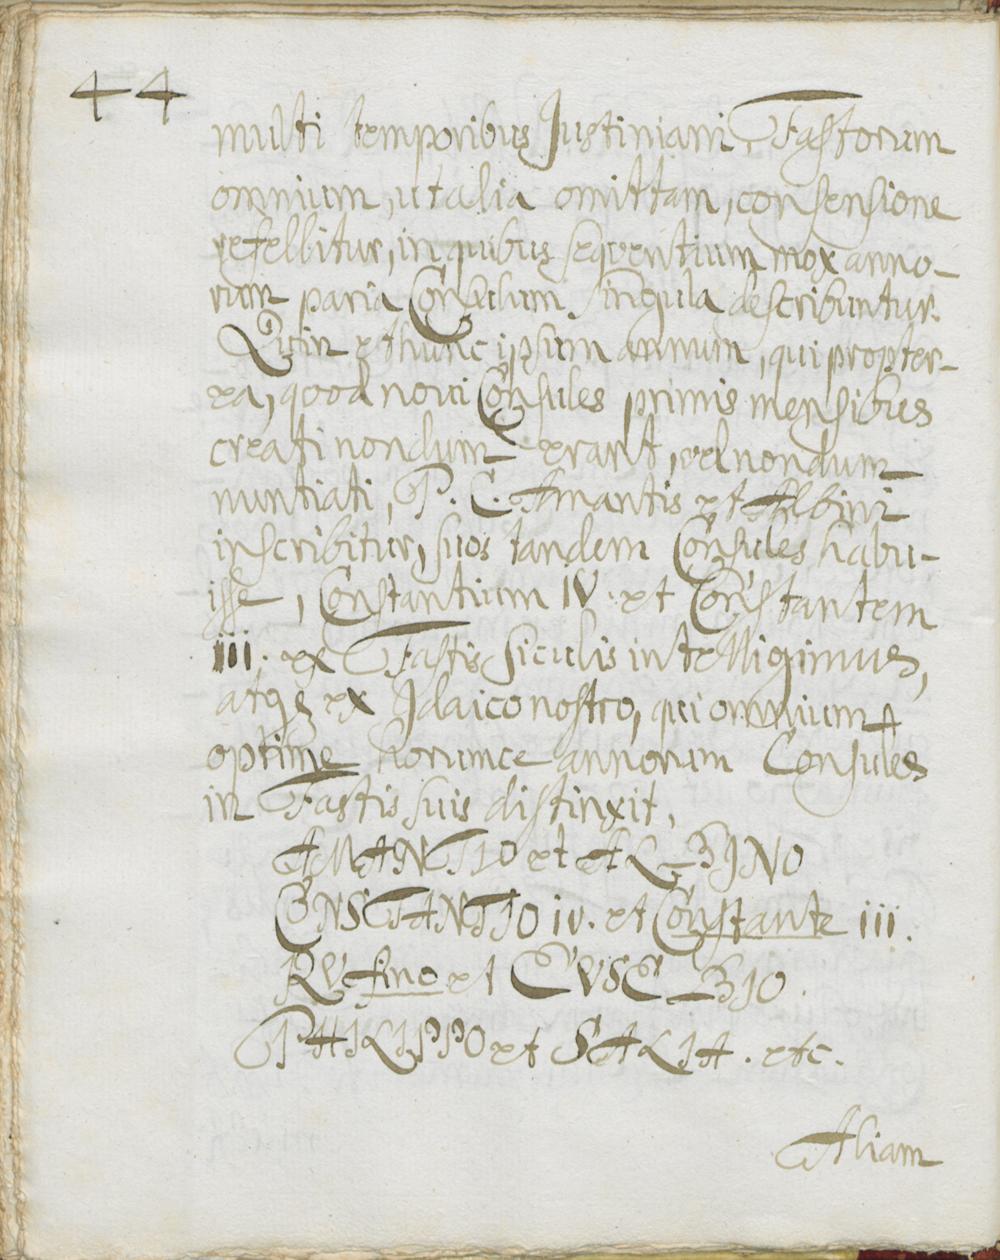 44
multi temporibus Justiniani, Fastorum
omnium, ut alia omittam, consensione
refellitur, in quibus sequentium mox anno-
rum paria Consulum singula describuntur.
Quin et hunc ipsum annum, qui propter-
ea, quod novi Consules primis mensibus
creati nondum erant, vel nondum
nuntiati, P. C. Amantis et Albini
inscribitur, suos tandem Consules habu-
isse, Constantium IV. et Constantem
III. ex Fastis Siculis intelligimus,
atq; ex Idaico nostro, qui omnium
optime horumce annorum Consules
in Fastis suis distinxit,
AMANTIO et ALBINO
CONSTANTIO iv. et Constante iii.
RVfino et EVSEBIO.
PHILIPPO et SALIA. etc.
Aliam